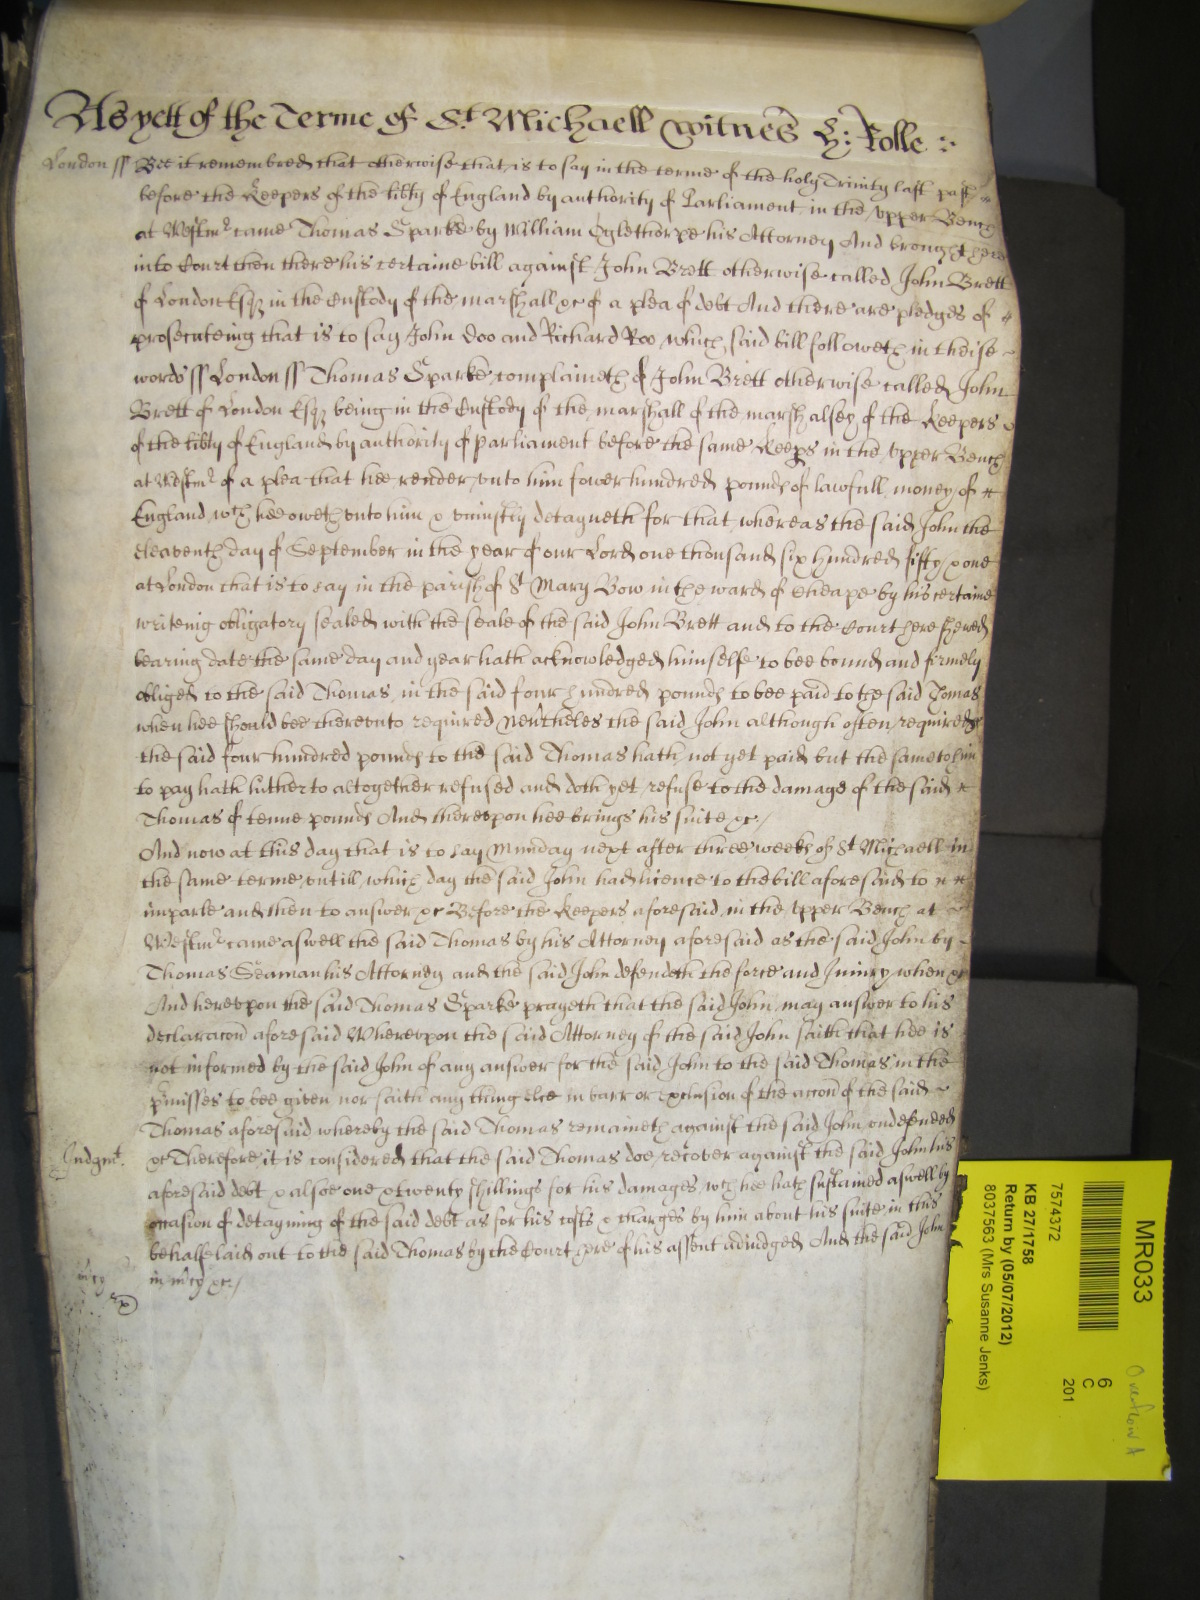 As yett of the Terme of St. Michaell witnes H: Rolle :~
London ss Bee it remembred that otherwise that is to say in the terme of the holy Trinity last past
before the Keepers of the libty of England by authority of Parliament in the Upper Bench
at Westmr came Thomas Sparke by William Oglethorpe his Attorney And brought here
into Court then there his certaine bill against John Brett otherwise called John Brett
of London Esqz in the Custody of the marshall &c of a plea of debt And there are pledges of
prosecuteing that is to say John Doo and Richard Roo which said bill followeth in theise
words ss London ss Thomas Sparke complaineth of John Brett otherwise called John
Brett of London Esqz being in the Custody of the marshall of the marshalsey of the Keepers
of the libty of England by authority of Parliament before the same Keeps in the Upper Bench
at Westmr of a plea that hee render unto him fower hundred pounds of lawfull money of
England wch hee oweth unto him & uniustly detayneth for that whereas the said John the
eleaventh day of September in the year of our Lord one thousand six hundred fifty & one
at London that is to say in the parish of St Mary Bow in the ward of Cheape by his certaine
writeing obligatory sealed with the seale of the said John Brett and to the Court here shewed
bearing date the same day and year hath acknowledged himselfe to bee bound and firmely
obliged to the said Thomas in the said four hundred pounds to bee paid to the said Thomas
when hee should bee thereunto required Nevertheles the said John although often required
the said four hundred pounds to the said Thomas hath not yet paid but the same to him
to pay hath hitherto altogether refused and doth yet refuse to the damage of the said
Thomas of tenne pounds And thereupon hee brings his suite &c/
And now at this day that is to say Munday next after three weeks of St Michaell in
the same terme untill which day the said John had licence to the bill aforesaid to
imparle and then to answer &c Before the Keepers aforesaid in the Upper Bench at
Westmr came aswell the said Thomas by his Attorney aforesaid as the said John by
Thomas Seaman his Attorney and the said John defendeth the force and Iniury when &c
And hereupon the said Thomas Sparke prayeth that the said John may answer to his
declaracon aforesaid Whereupon the said Attorney of the said John saith that hee is
not informed by the said John of any answer for the said John to the said Thomas in the
pmisses to bee given nor saith any thing else in barr or exclusion of the accon of the said
Thomas aforesaid whereby the said Thomas remaineth against the said John undefended
Iudgmt. &c Therefore it is considered that the said Thomas doe recover against the said John his
aforesaid debt & alsoe one & twenty shillings for his damages wch hee hath sustained aswell by
occasion of detayning of the said debt as for his costs & charges by him about his suite in this
behalfe laid out to the said Thomas by the Court here of his assent adiudged And the said John
mcy in mcy &c/
MR033
Overflow A
6
C
201
7574372
KB 27/1758
Return by (05/07/2012)
8037563 (Mrs Susanne Jenks)